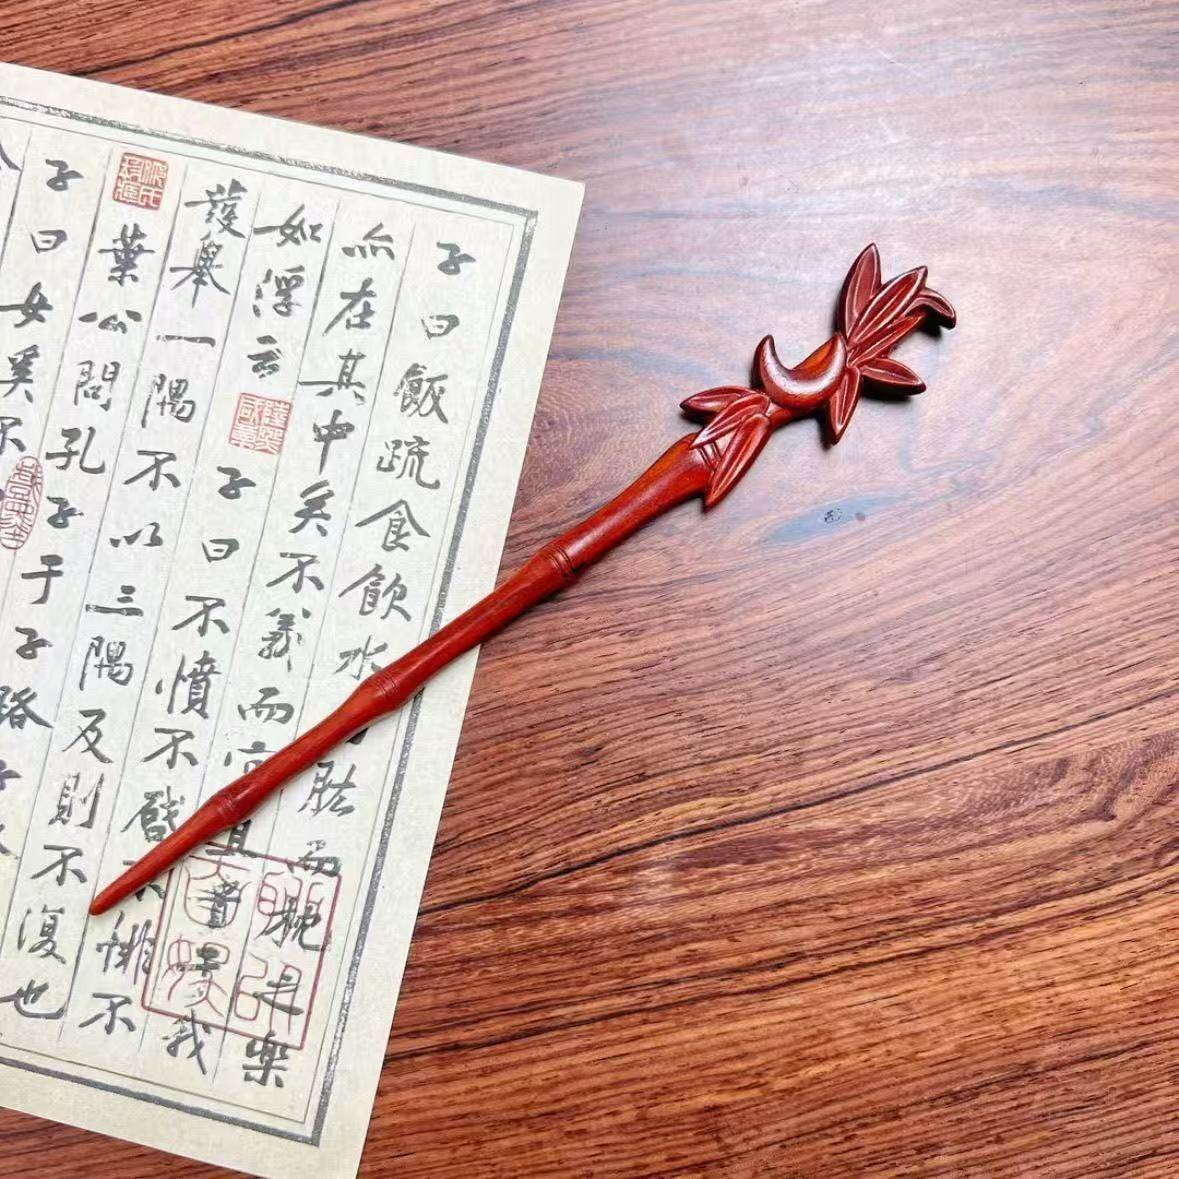 子曰飯疏食飲水肱而枕之樂
亦在其中矣不義而富且貴於我
如浮云 子曰不憤不啟不悱不
發舉一隅不以三隅反則不復也
葉公問孔子于子路子不
子曰女奚不